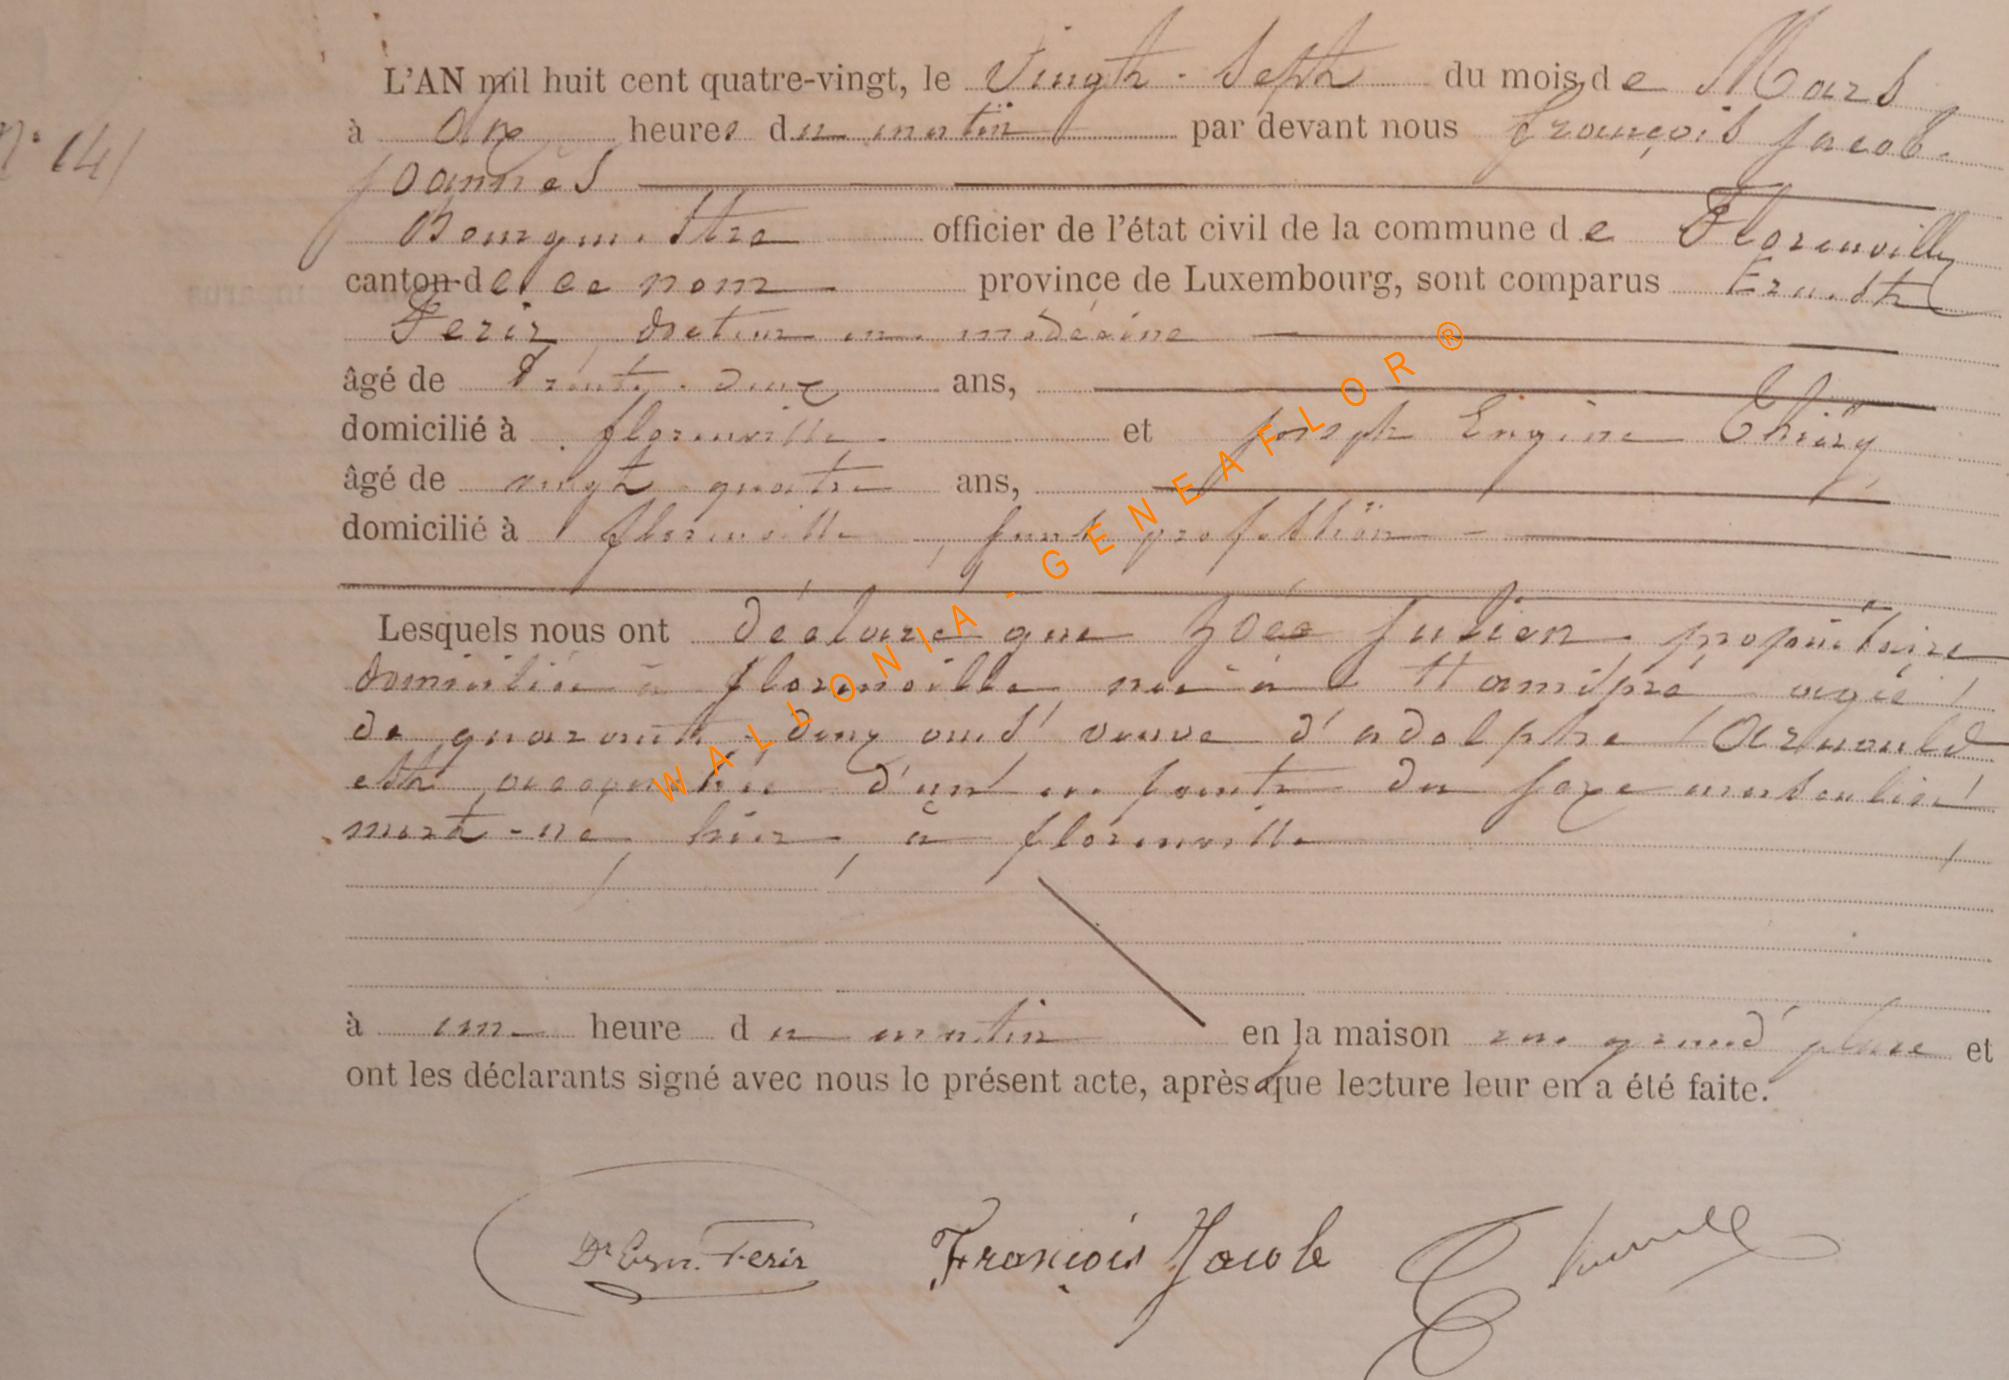 N° 14
L'AN mil huit cent quatre-vingt, le Vingt-Sept du mois de Mars
à dix heures du matin par devant nous François Jacob
Joannès
Bourgmestre officier de l'état civil de la commune de Florenville
canton de ce nom province de Luxembourg, sont comparus Ernest
Ferir, docteur en médecine
âgé de trente-deux ans,
domicilié à florenville et Joseph Eugène Thiéry
âgé de vingt quatre ans,
domicilié à florenville, sans profession
Lesquels nous ont déclaré que Zoée Julien, propriétaire
domiciliée à florenville, née à Hamipré, agée
de quarante-deux ans, veuve d'adolphe Arnould
est accouchée d'un enfant du sexe masculin
mort-né, hier, à florenville
à une heure du matin en la maison rue grand place et
ont les déclarants signé avec nous le présent acte, après que lecture leur en a été faite.
Dr Ern. Ferir François Jacob
WALLONIA - GENEAFLOR ®